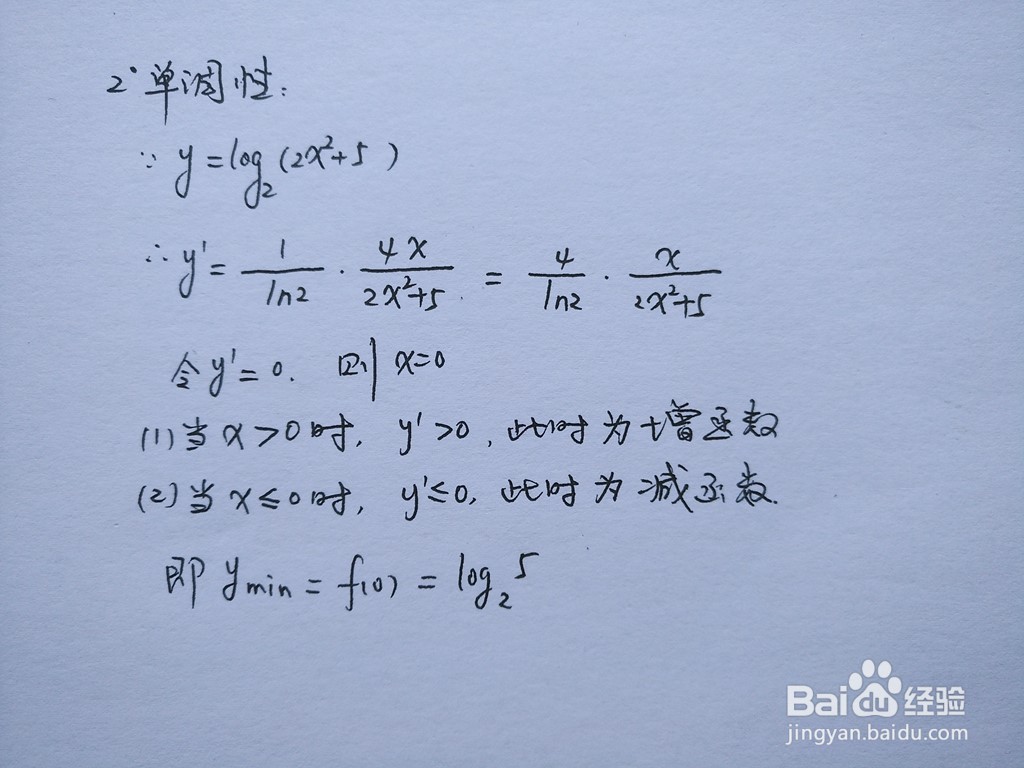 2°单调性:
∵ y=log₂(2x²+5)
∴ y'= 1/ln2 · 4x/(2x²+5) = 4/ln2 · x/(2x²+5)
令y'=0. 则x=0
(1)当x>0时, y'>0, 此时为增函数
(2)当x≤0时, y'≤0, 此时为减函数.
即 ymin = f(0) = log₂5
Bai du 经验
jingyan.baidu.com